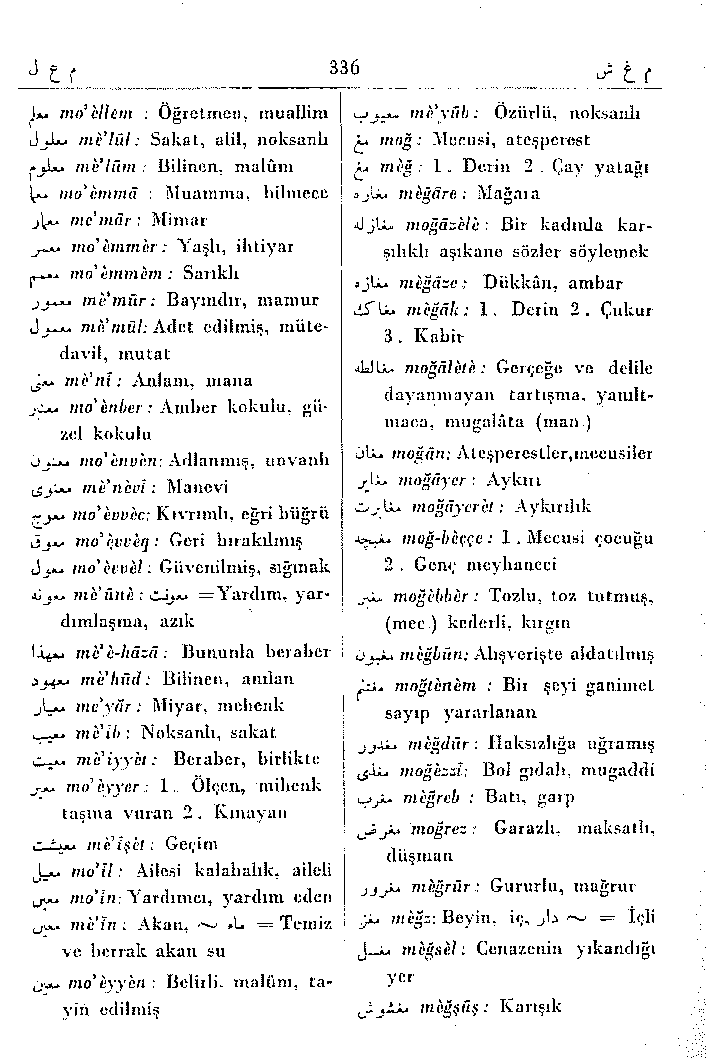 م ع ل 336 م غ ش
معلم mo'èllem : Öğretmen, muallim
معلول mè'lûl: Sakat, alil, noksanlı
معلوم mè'lûm : Bilinen, malûm
معما mo'èmmâ : Muamma, bilmece
معمار me'mâr : Mimar
معمر mo'èmmèr : Yaşlı, ihtiyar
معمم mo'èmmèm : Sarıklı
معمور mè'mûr : Bayındır, mamur
معمول mè'mûl: Adet edilmiş, müte-
davil, mutat
معنی mè'nî : Anlam, mana
معنبر mo'ènber : Amber kokulu, gü-
zel kokulu
معنون mo'ènvèn: Adlanmış, unvanlı
معنوی mè'nèvî : Manevi
معوج mo'èvvèc: Kıvrımlı, eğri büğrü
معوق mo'èvvèq : Geri bırakılmış
معول mo'èvvèl : Güvenilmiş, sığınak
معونه mè'ûnè : معونت =Yardım, yar-
dımlaşma, azık
معهذا mè'è-hâzâ : Bununla beraber
معهود mè'hûd : Bilinen, anılan
معیار me'yâr : Miyar, mehenk
معیب mè'ib : Noksanlı, sakat
معیت mè'iyyèt : Beraber, birlikte
معیر mo'èyyer : 1. Ölçen, mihenk
taşına vuran 2. Kınayan
معیشت mè'îşèt : Geçim
معیل mo'îl : Ailesi kalabalık, aileli
معین mo'in: Yardımcı, yardım eden
معین mè'în : Akan, ~ ماء = Temiz
ve berrak akan su
معین mo'èyyèn : Belirli, malûm, ta-
yin edilmiş
معیوب mè'yûb : Özürlü, noksanlı
مغ moğ : Mecusi, ateşperest
مغ mèğ : 1. Derin 2. Çay yatağı
مغاره mèğâre : Mağara
مغازله moğâzèlè : Bir kadınla kar-
şılıklı aşıkane sözler söylemek
مغازه mèğâze : Dükkân, ambar
مغاك mèğâk : 1. Derin 2. Çukur
3. Kabir
مغالطه moğâlètè : Gerçeğe ve delile
dayanmayan tartışma, yanılt-
maca, mugalâta (man.)
مغان moğân: Ateşperestler,mecusiler
مغایر moğâyer : Aykırı
مغایرت moğâyerèt : Aykırılık
مغبچه moğ-bèççe : 1. Mecusi çocuğu
2. Genç meyhaneci
مغبر moğèbbèr : Tozlu, toz tutmuş,
(mec.) kederli, kırgın
مغبون mèğbûn: Alışverişte aldatılmış
مغتنم moğtènèm : Bir şeyi ganimet
sayıp yararlanan
مغدور mèğdûr : Haksızlığa uğramış
مغذی moğèzzî: Bol gıdalı, mugaddi
مغرب mèğreb : Batı, garp
مغرض moğrez : Garazlı, maksatlı,
düşman
مغرور mèğrûr : Gururlu, mağrur
مغز mèğz: Beyin, iç, دار ~ = İçli
مغسل mèğsèl : Cenazenin yıkandığı
yer
مغشوش mèğşûş : Karışık